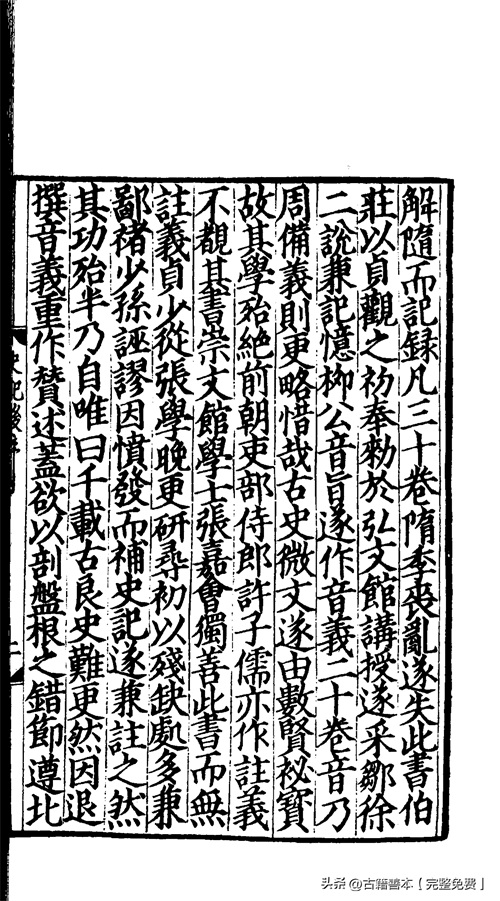 解隨而記録凡三十卷隋季喪亂遂失此書伯
莊以貞觀之初奉勑於弘文館講授遂采鄒徐
二說兼記憶栁公音旨遂作音義二十卷音乃
周備義則更略惜哉古史微文遂由數賢祕寶
故其學殆絶前朝吏部侍郎許子儒亦作註義
不覩其書崇文館學士張嘉會獨善此書而無
註義貞少從張學晚更研尋初以殘缺處多兼
鄙褚少孫誣謬因憤發而補史記遂兼註之然
其功殆半乃自唯曰千載古良史難更然因退
撰音義重作賛述蓋欲以剖盤根之錯節遵北
史記後序
二
头条@古籍善本【完整免费】